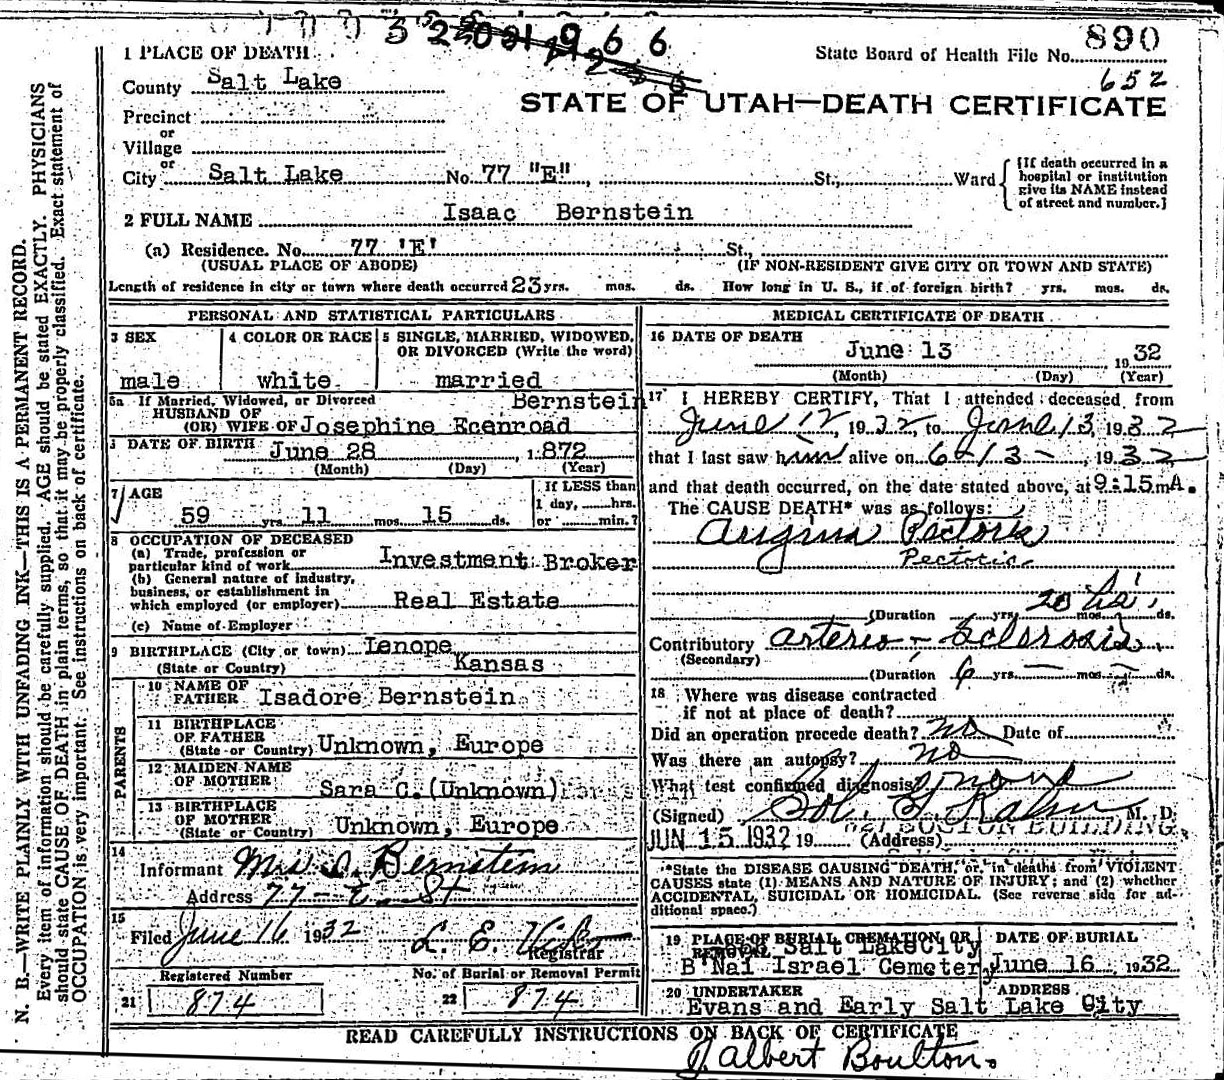 890
State Board of Health File No.
652
1 PLACE OF DEATH
County Salt Lake
STATE OF UTAH—DEATH CERTIFICATE
Precinct
or
Village
or
City Salt Lake No. 77 "E" St., Ward
[If death occurred in a hospital or institution give its NAME instead of street and number.]
2 FULL NAME Isaac Bernstein
(a) Residence. No. 77 'E' St.,
(USUAL PLACE OF ABODE) (IF NON-RESIDENT GIVE CITY OR TOWN AND STATE)
Length of residence in city or town where death occurred 23 yrs. mos. ds. How long in U. S., if of foreign birth? yrs. mos. ds.
PERSONAL AND STATISTICAL PARTICULARS
3 SEX 4 COLOR OR RACE 5 SINGLE, MARRIED, WIDOWED,
OR DIVORCED (Write the word)
male white married
5a If Married, Widowed, or Divorced Bernstein
HUSBAND OF
(OR) WIFE OF Josephine Ecenroad
DATE OF BIRTH June 28, 1872
(Month) (Day) (Year)
7 AGE If LESS than
1 day, hrs.
59 yrs. 11 mos. 15 ds. or min.?
8 OCCUPATION OF DECEASED
(a) Trade, profession or
particular kind of work Investment Broker
(b) General nature of industry,
business, or establishment in
which employed (or employer) Real Estate
(c) Name of Employer
9 BIRTHPLACE (City or town) Lenope
(State or Country) Kansas
PARENTS
10 NAME OF
FATHER Isadore Bernstein
11 BIRTHPLACE
OF FATHER
(State or Country) Unknown, Europe
12 MAIDEN NAME
OF MOTHER Sara C. (Unknown)
13 BIRTHPLACE
OF MOTHER
(State or Country) Unknown, Europe
14
Informant Mrs I. Bernstein
Address 77 - E. St
15
Filed June 16 1932
Registrar
Registered Number No. of Burial or Removal Permit
21 874 22 874
MEDICAL CERTIFICATE OF DEATH
16 DATE OF DEATH
June 13 1932
(Month) (Day) (Year)
17 I HEREBY CERTIFY, That I attended deceased from
June 12, 1932, to June 13, 1932
that I last saw him alive on 6-13-, 1932
and that death occurred, on the date stated above, at 9:15 m A.
The CAUSE DEATH* was as follows:
Angina Pectoris
Pectoris
(Duration yrs. mos. ds.
Contributory arterio-Sclerosis
(Secondary)
(Duration 6 yrs. — mos. — ds.
18 Where was disease contracted
if not at place of death?
Did an operation precede death? no Date of
Was there an autopsy? no
What test confirmed diagnosis?
(Signed) Sol. G. Kahn M. D.
JUN 15 1932 19 (Address) BOSTON BUILDING
*State the DISEASE CAUSING DEATH, or, in deaths from VIOLENT
CAUSES state (1) MEANS AND NATURE OF INJURY; and (2) whether
ACCIDENTAL, SUICIDAL OR HOMICIDAL. (See reverse side for ad-
ditional space.)
19 PLACE OF BURIAL CREMATION OR DATE OF BURIAL
REMOVAL Salt Lake City
B'Nai Israel Cemetery June 16, 1932
20 UNDERTAKER ADDRESS
Evans and Early Salt Lake City
READ CAREFULLY INSTRUCTIONS ON BACK OF CERTIFICATE
J. Albert Boulton.
N. B.—WRITE PLAINLY WITH UNFADING INK—THIS IS A PERMANENT RECORD.
Every item of information should be carefully supplied. AGE should be stated EXACTLY. PHYSICIANS
should state CAUSE OF DEATH in plain terms, so that it may be properly classified. Exact statement of
OCCUPATION is very important. See instructions on back of certificate.